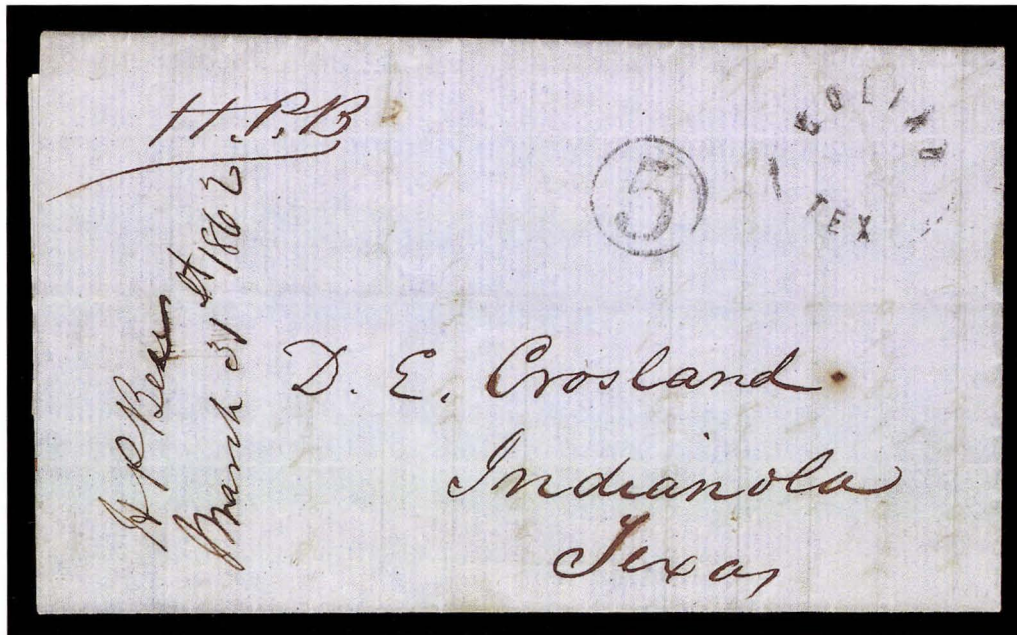 H.P.B
GOLIAD
TEX
5
H P Bee
March 31st 1862
D. E. Crosland
Indianola
Texas